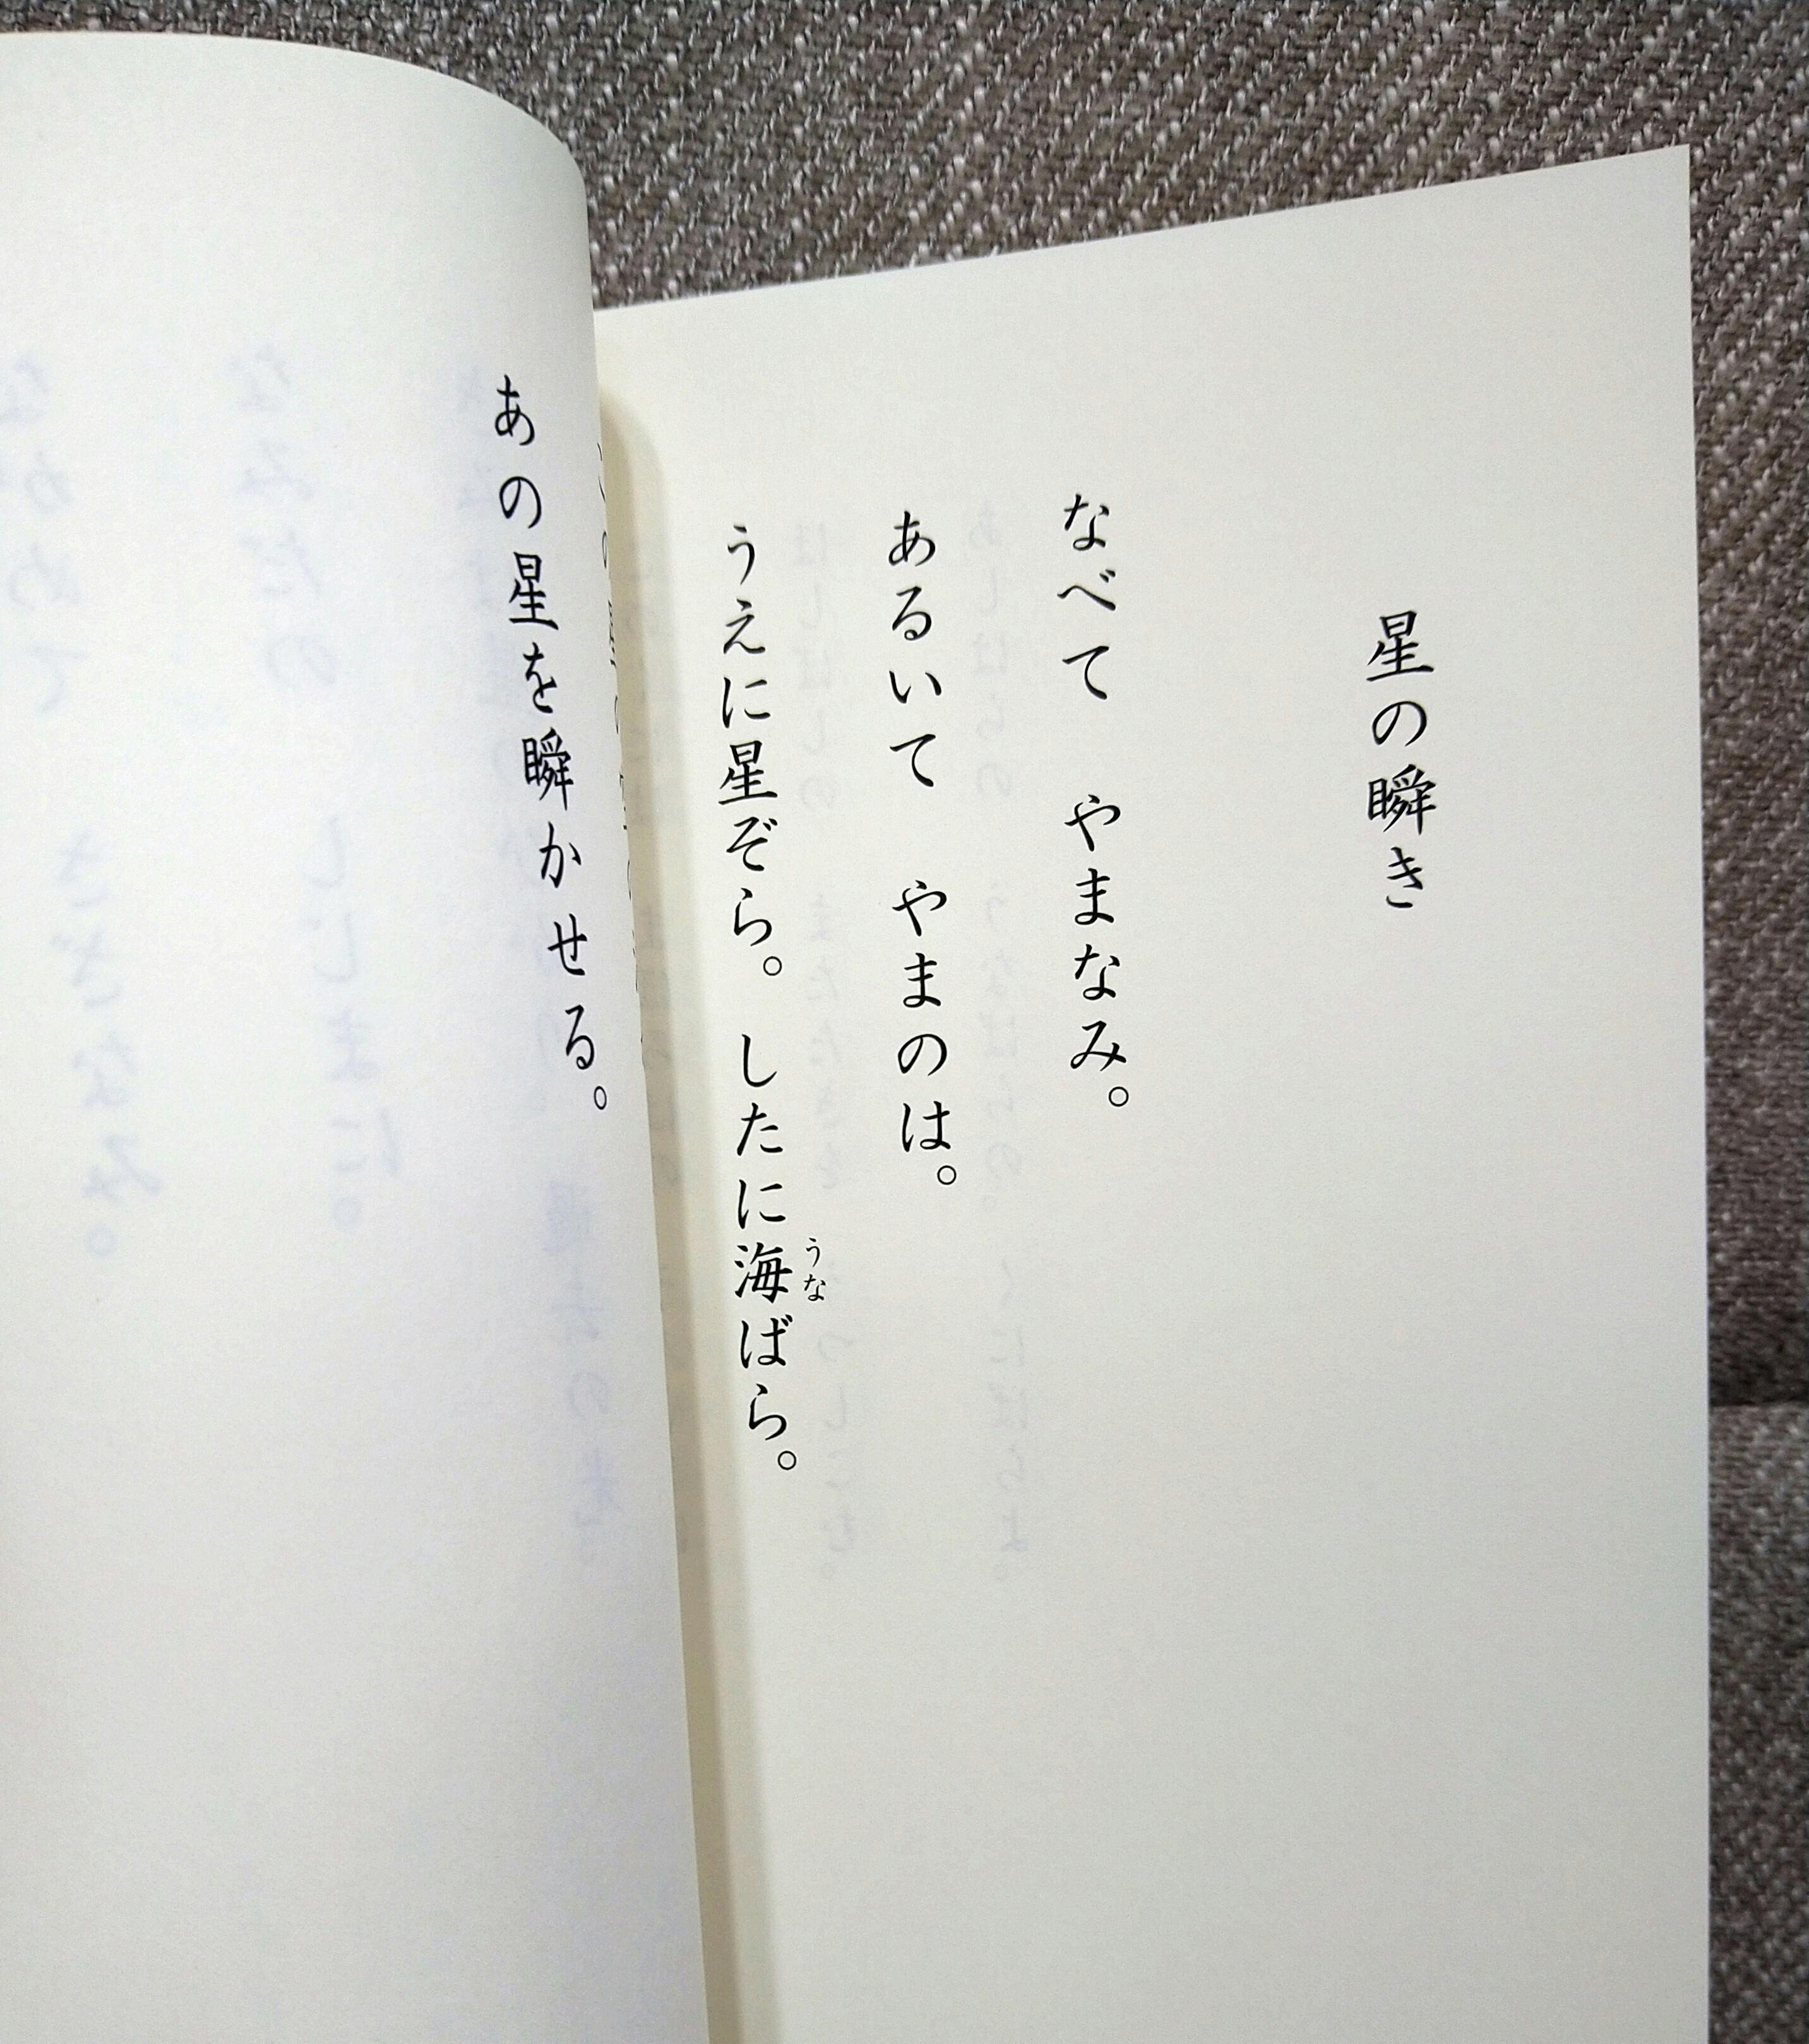 星の瞬き
なべて　やまなみ。
あるいて　やまのは。
うえに星ぞら。　したに海ばら。
うな
あの星を瞬かせる。